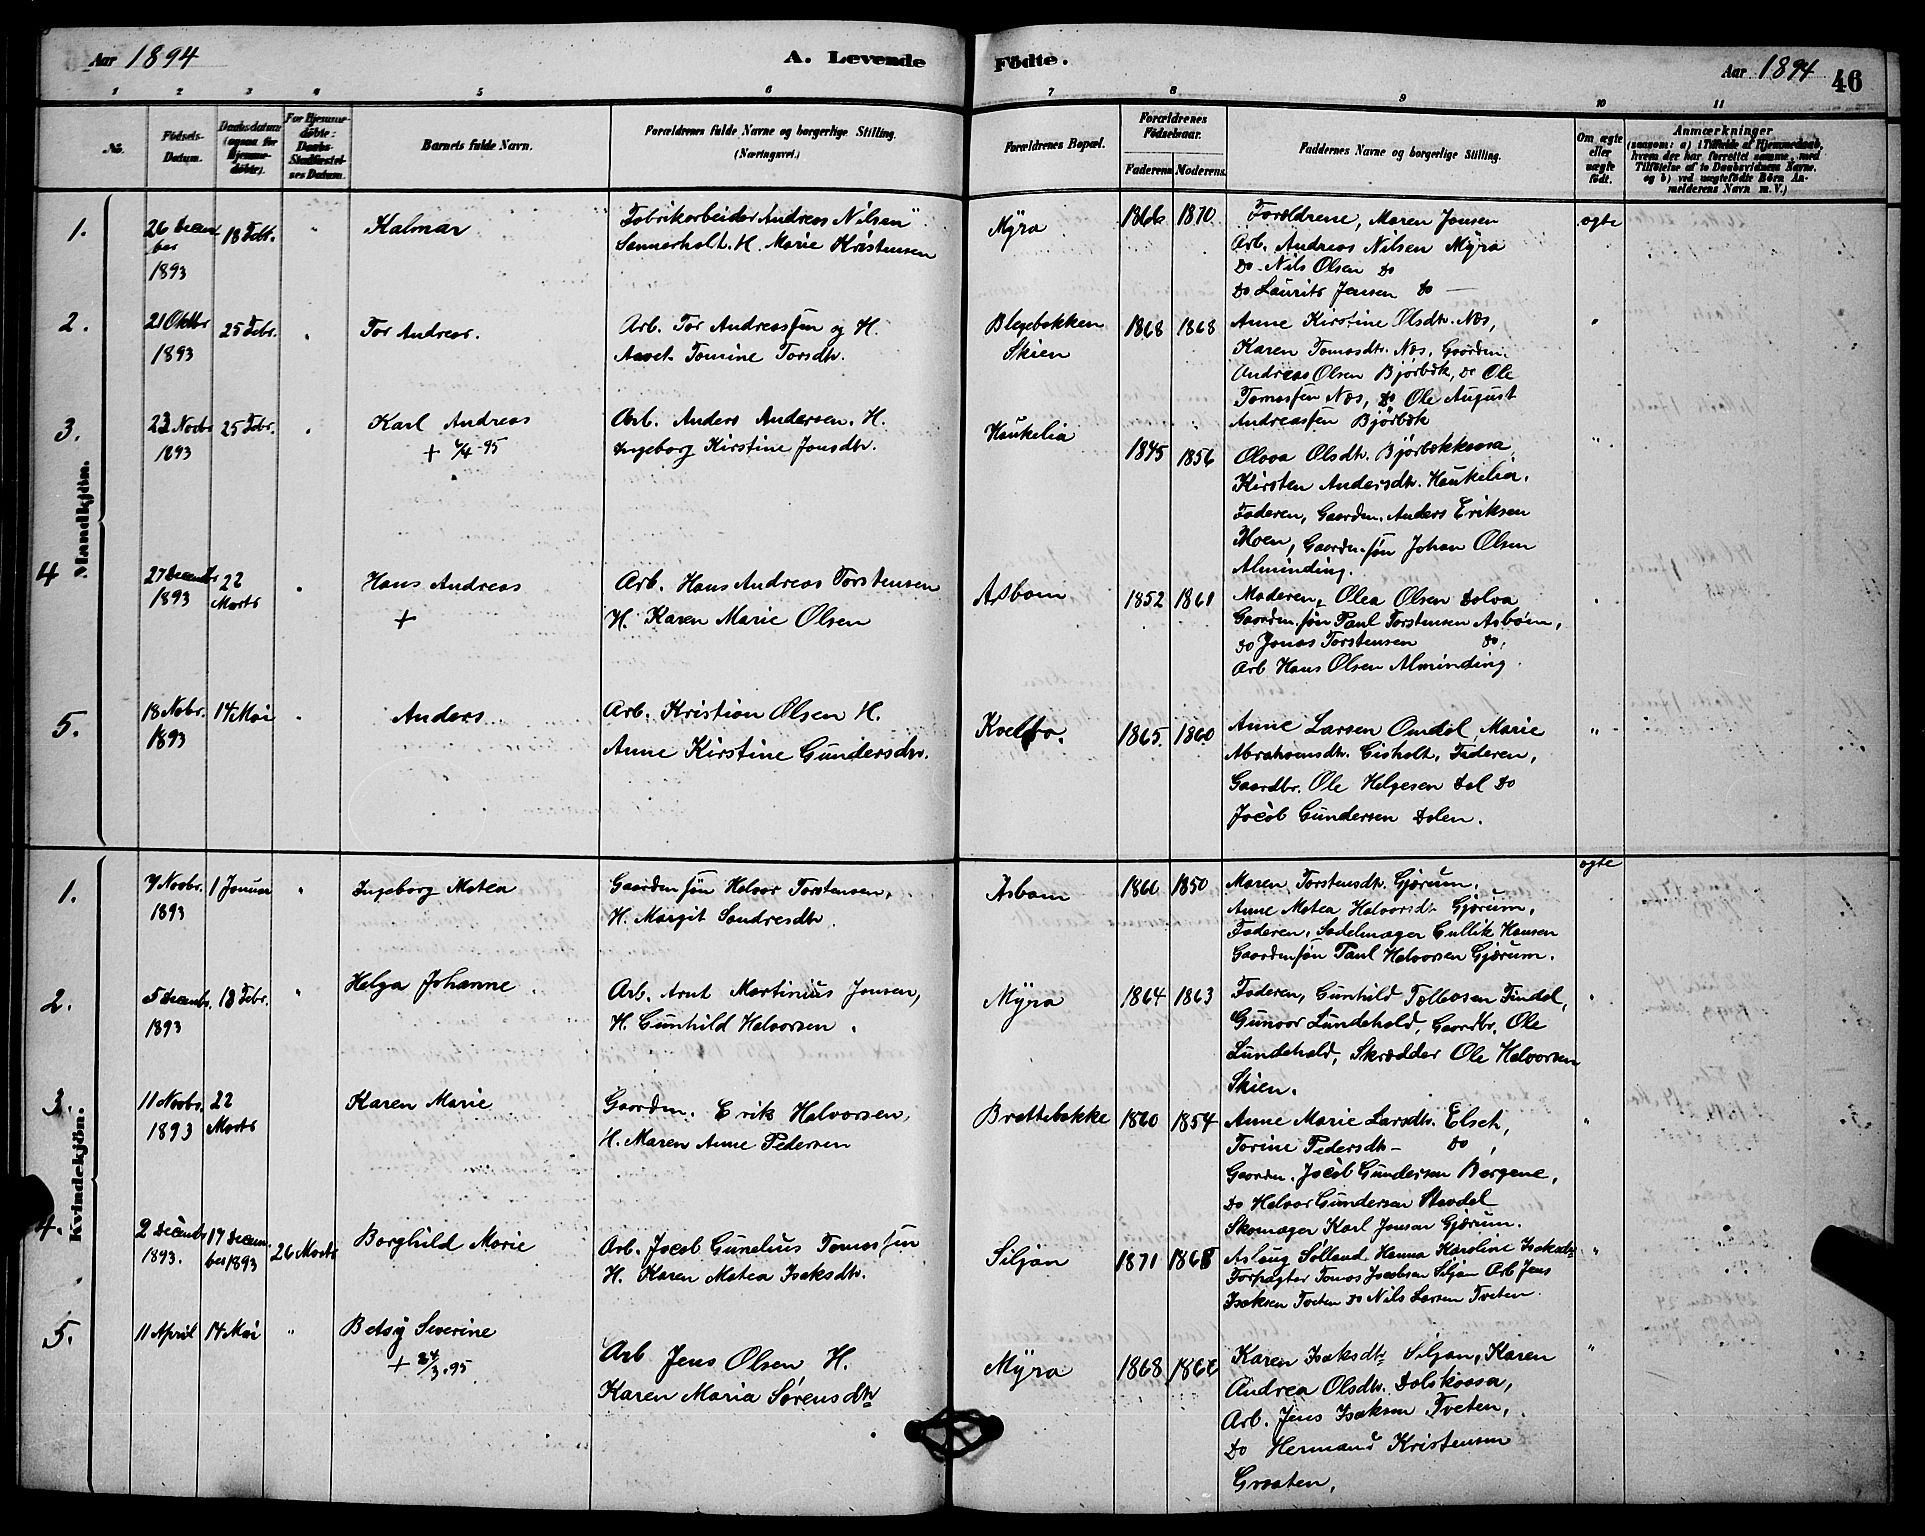 Aar 1894
A. Levende
Fødte.
Aar 1894
46
1 2 3 4 5 6 7 8 9 10 11
No.
Fødsels-
Datum.
Daabsdatum
(ogsaa for
Hjemme-
døbte).
For Hjemme-
døbte:
Daabs-
Stadfæstel-
ses Datum.
Barnets fulde Navn.
Forældrenes fulde Navne og borgerlige Stilling.
(Næringsvei.)
Forældrenes Bopæl.
Forældrenes
Fødselsaar.
Faderens Moderens
Faddernes Navne og borgerlige Stilling.
Om ægte
eller
uægte
født.
Anmærkninger
(saasom: a) i Tilfælde af Hjemmedaab,
hvem der har forrettet samme, med
Tilføielse af to Daabsvidners Navne,
og b) ved uægtefødte Børn An-
melderens Navn m. V.)
Mandkjøn.
1.
26 Decem
ber
1893
18 Febr.
"
Kalmar
Fabrikarbeider Andreas Nilsen
Sannerholt. H. Marie Kristensen
Myra
1866
1870
Forældrene, Maren Jensen
Arb. Andreas Nilsen Myra
Do Nils Olsen Do
Do Laurits Jensen Do
ægte
2.
21 Oktbr
1893
25 Febr.
"
Tor Andreas.
Arb. Tor Andreassen og H.
Aaset. Tomine Torsdtr.
Blegebakken
Skien
1868
1868
Anne Kirstine Olsdtr. Næs,
Karen Tomasdtr. Næs, Gaardm.
Andreas Olsen Bjørbæk, Do Ole
Tomassen Næs, Do Ole August
Andreassen Bjørbæk
"
3.
23 Novbr
1893
25 Febr.
"
Karl Andreas
+ 4/4-95
Arb. Anders Andersen. H.
Ingeborg Kirstine Jonsdtr.
Haukelia
1845
1856
Olava Olsdtr. Bjørbækkaasa
Kirsten Andersdtr. Haukelia.
Faderen, Gaardm. Anders Eriksen
Moen, Gaardm. søn Johan Olsen
Alminding.
"
4
27 Decembr
1893
22
Marts
"
Hans Andreas
+
Arb. Hans Andreas Torstensen
H. Karen Marie Olsen
Åsbom
1852
1861
Moderen, Olea Olsen Dolva
Gaardm. søn Paul Torstensen Åsbom,
Do Jonas Torstensen Do,
Arb Hans Olsen Alminding.
"
5.
18 Nobr.
1893
14 Mai
"
Anders
Arb. Kristian Olsen H.
Anne Kirstine Gundersdtr.
1865.
1860
Anne Larsen Omdal, Marie
Abrahamsdtr. Gisholt, Faderen,
Gaardbr. Ole Helgesen Dal Do
Jacob Gundersen Dolen.
"
Kvindekjøn.
1.
7 Novbr.
1893
1 Januar
"
Ingeborg Matea
Gaardm søn Halvor Torstensen,
H. Margit Sondresdtr.
Åsbom
1860
1850
Maren Torstensdtr. Gjærum,
Anne Matea Halvorsdtr Gjærum,
Faderen, Sadelmager Gullik Hansen
Gaardmsøn Paul Halvorsen Gjærum.
ægte
2.
5 Decembr.
1893
18 Febr.
"
Helga Johanne
Arb. Arnt Martinius Jensen,
H. Gunhild Halvorsen.
Myra
1864
1863
Faderen, Gunhild Tollevsen Findal,
Gunvor Lundehald, Gaardbr. Ole
Lundehald, Skrædder Ole Halvorsen
Skien.
"
3.
11 Novbr.
1893
22
Marts
Karen Marie
Gaardm. Erik Halvorsen,
H. Maren Anne Pedersen
Brattebakke
1860
1854
Anne Marie Larsdtr. Elset,
Torine Pedersdtr - Do,
Gaardm. Jacob Gundersen Bergene,
Do Halvor Gundersen
Skomager Karl Jensen Gjærum.
"
4.
2 Decembr
1893.
17 Decem
ber 1893
26 Marts
Borghild Marie
Arb. Jacob Gunelius Tomassen
H. Karen Matea Isaksdtr.
Siljan
1871
Aslaug Sølland Hanna Karoline Isaksdtr
Forpagter Tomas Jacobsen Siljan Arb Jens
Isaksen Tveten Do Nils Larsen Tveten.
"
5.
11 April
14 Mai
"
Betsy Severine
+ 24/3.95
Arb Jens Olsen H.
Karen Maria Sørensdtr
Myra
1868
Karen Isaksdtr Siljan, Karen
Andrea Olsdtr. Dolskaasa,
Arb. Jens Isaksen Tveten,
Do Hermand Kristensen
Graaten.
"